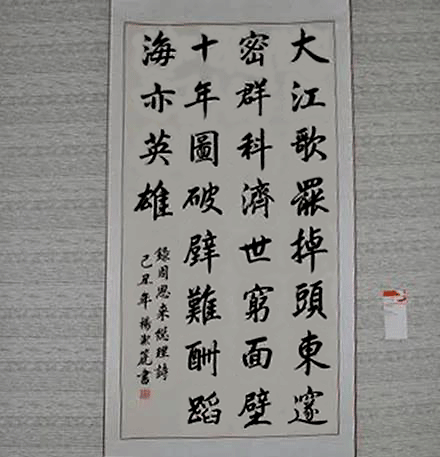 大江歌罷掉頭東邃
密群科濟世窮面壁
十年圖破壁難酬蹈
海亦英雄
錄周恩來總理詩
己丑年楊書